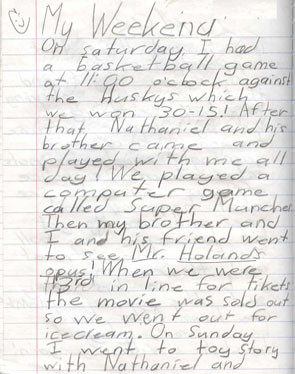 My Weekend
On saturday I had
a basketball game
at 11:00 o'clock against
the Huskys which
we won 30-15! After
that Nathaniel and his
brother came and
played with me all
day! We played a
computer game
called Super Munchel
Then my brother and
I and his friend went
to see Mr. Holands
opus! When we were
third in line for tikets
the movie was sold out
so we went out for
icecream. On Sunday
I went to toy story
with Nathaniel and